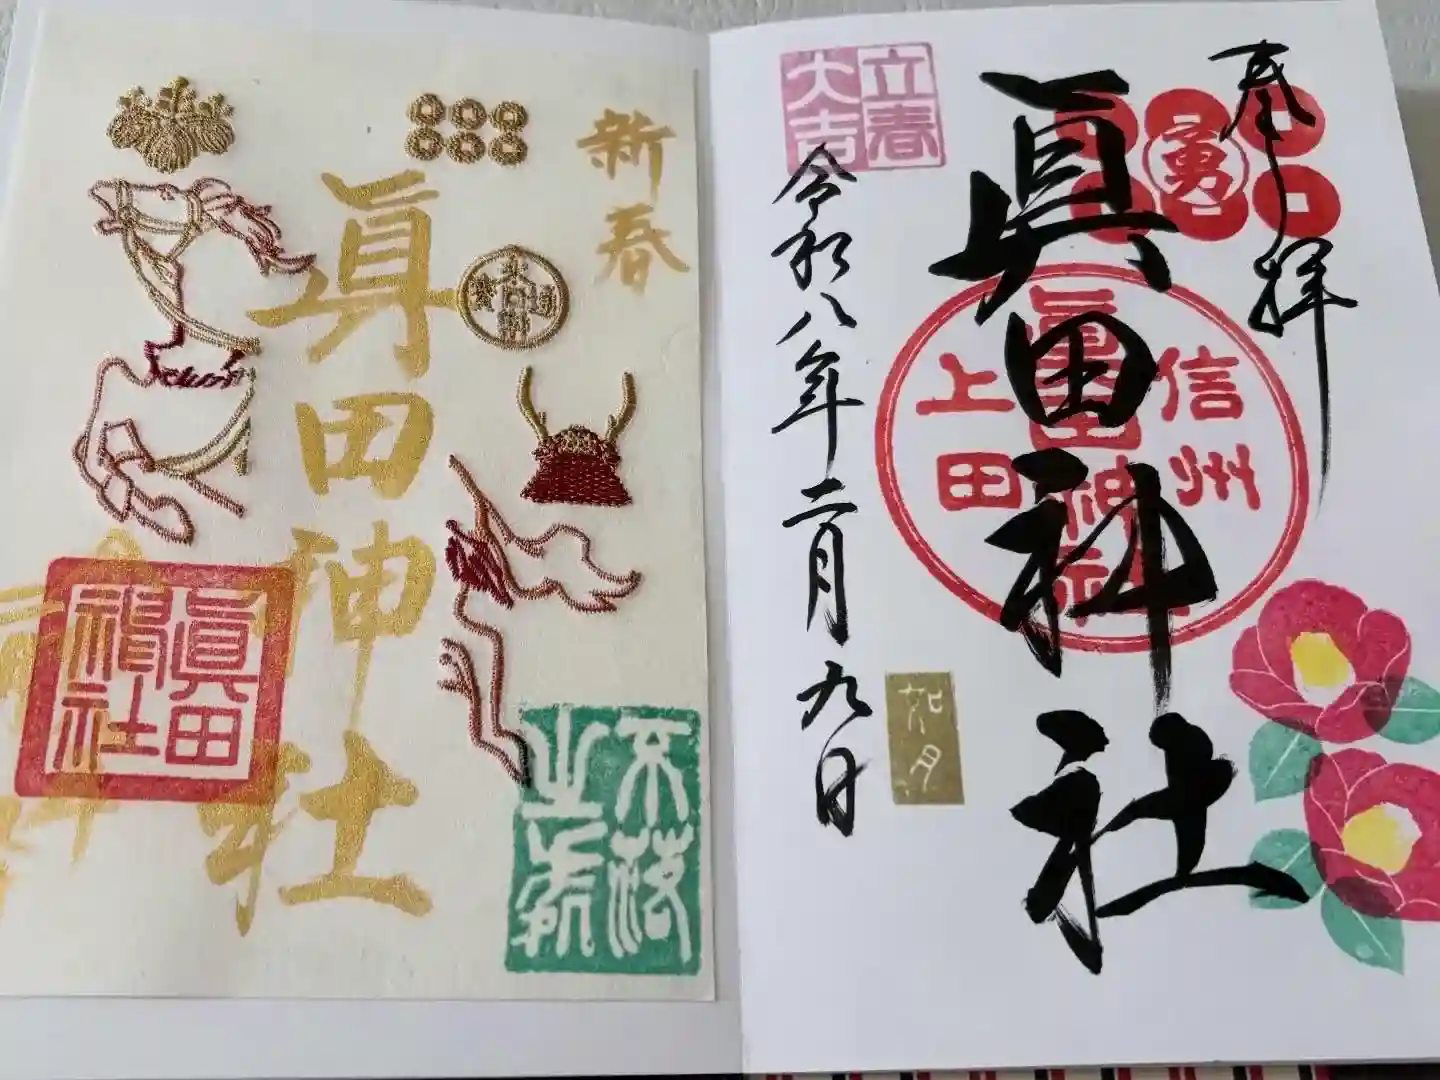 奉拝
勇
眞田神社
信州
眞田神社
上田
立春
大吉
令和八年二月九日
如月
新春
眞田神社
眞田
神社
不落